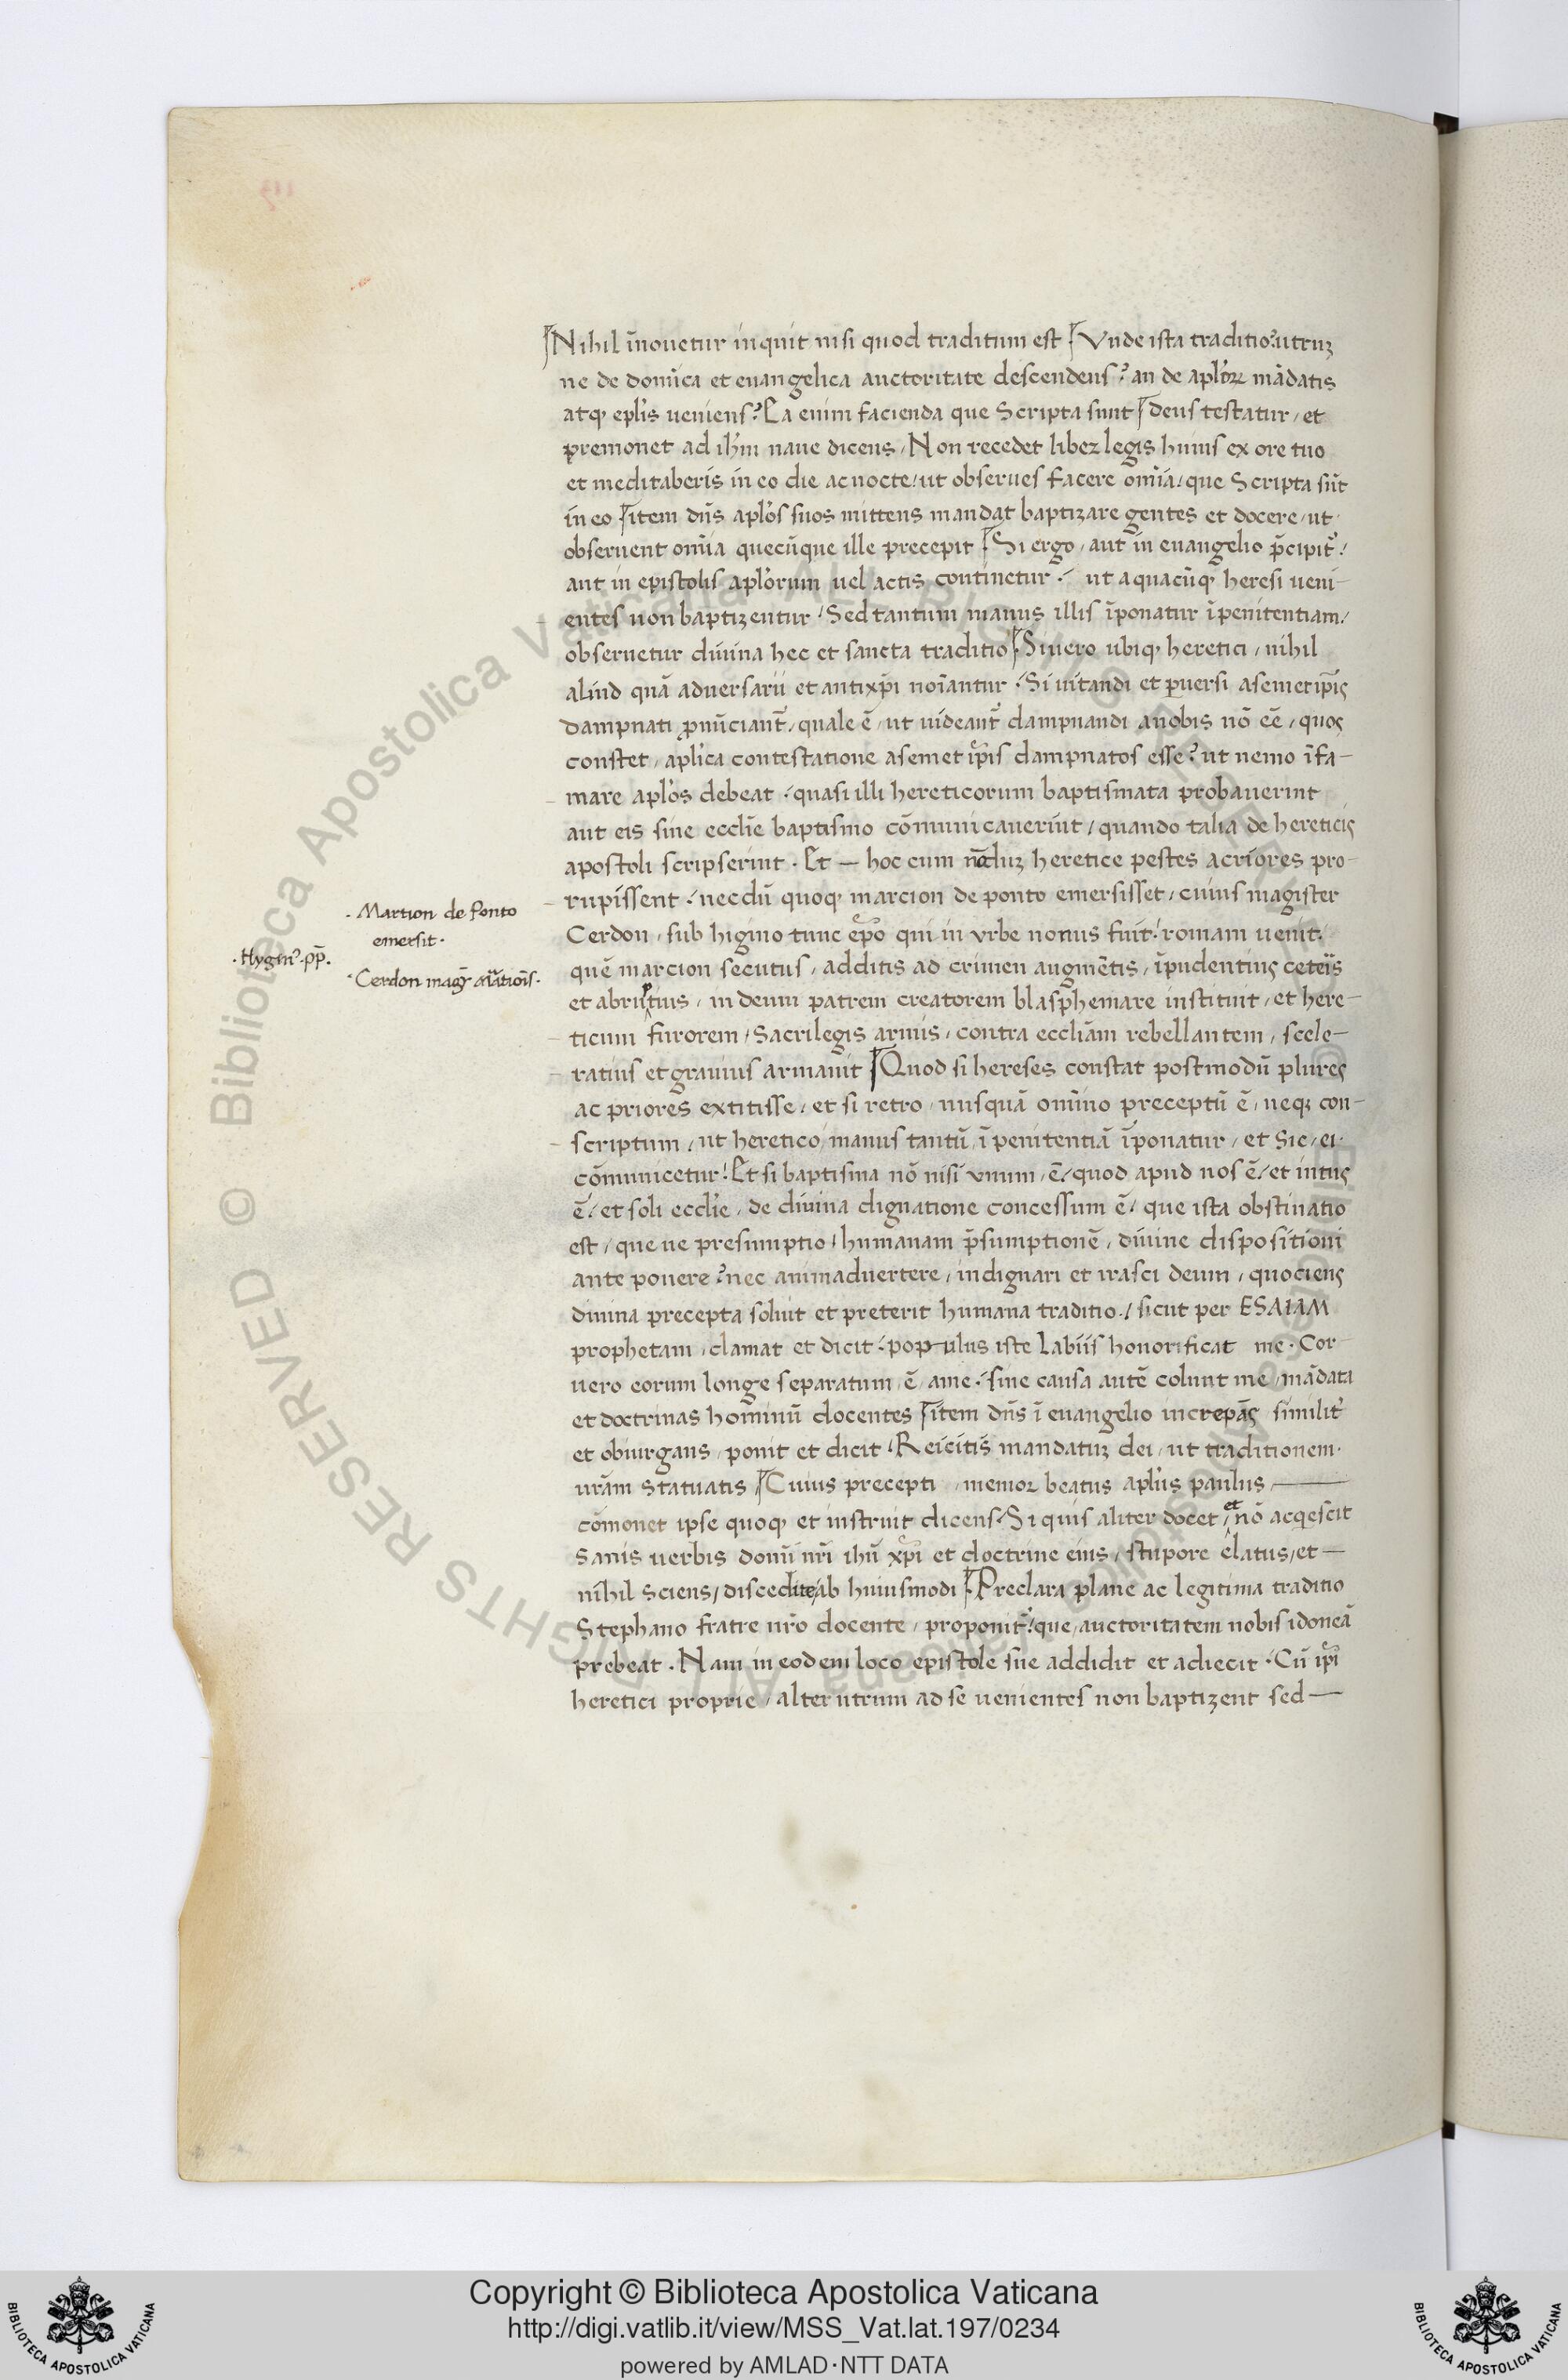 Nihil īnovetur inquit nisi quod traditum est Vnde ista traditio? utruꝫ
ne de domīca et euangelica auctoritate descendens? an de aplōꝝ mādatis
atqꝫ eplīs ueniens? Ea enim facienda que Scripta sunt deus testatur / et
premonet ad ihm̄ naue dicens / Non recedet liber legis huius ex ore tuo
et meditaberis in eo die ac nocte / ut obserues facere omīa / que Scripta sūt
in eo item dn̄s aplōs suos mittens mandat baptizare gentes et docere / ut
obseruent omīa quecūque ille precepit Si ergo / aut in euangelio p̄cipit᷑ /
aut in epistolis aplōrum uel actis continetur / ut a quacūqꝫ heresi ueni-
entes non baptizentur / Sed tantum manus illis īponatur ī penitentiam /
obseruetur diuina hec et sancta traditio Si uero ubiqꝫ heretici / nihil
aliud quā aduersarii et antixp̄i noīantur / Si uitandi et ꝑuersi a semetip̄is
dampnati ꝓnūciant᷑ / quale ē / ut uideant᷑ dampnandi a nobis nō eē / quos
constet / aplīca contestatione a semet ip̄is dampnatos esse? ut nemo īfa-
mare aplōs debeat / quasi illi hereticorum baptismata probauerint
aut eis sine ecclīe baptismo cōmunicauerint / quando talia de hereticis
apostoli scripserint . Et — hoc cum nōduꝫ heretice pestes acriores pro-
rupissent / necdū quoqꝫ marcion de ponto emersisset / cuius magister
· Martion de Ponto
emersit ·
Cerdon / sub higino tunc ep̄o qui in vrbe nonus fuit / romam uenit /
· Hygin⁹ · pp̄ .
quē marcion secutus / additis ad crimen augmētis / īpudentius ceteris
· Cerdon magr̄ m̄ationīs ·
et abruptius / in deum patrem creatorem blasphemare instituit / et here-
ticum furorem / Sacrilegis armis / contra eccliām rebellantem / scele-
ratius et grauius armauit Quod si hereses constat postmodū plures
ac priores extitisse / et si retro / nusquā omīno preceptū ē / neqꝫ con-
scriptum / ut heretico / manus tantū / ī penitentiā īponatur / et Sic / ei ·
cōmunicetur / Et si baptisma nō nisi vnum / ē / quod apud nos ē / et intus
ē / et soli ecclīe / de diuina dignatione concessum ē / que ista obstinatio
est / que ue presumptio / humanam p̄sumptionē / diuine dispositioni
ante ponere? nec animaduertere / indignari et irasci deum / quociens
diuina precepta soluit et preterit humana traditio / sicut per ESAIAM
prophetam / clamat et dicit / populus iste labiis honorificat me . Cor
uero eorum longe separatum / ē / a me / sine causa autē colunt me / mādata
et doctrinas hominū docentes item dn̄s ī euangelio increpās similit᷑
et obiurgans / ponit et dicit / Reicitis mandatuꝫ dei / ut traditionem
ur̄am statuatis Cuius precepti / memor beatus aplūs paulus —
cōmonet ipse quoqꝫ et instruit dicens / Si quis aliter docet / et nō acqescit
Sanis uerbis domī nr̄i ihū xp̄i et doctrine eius / stupore elatus / et —
nihil Sciens / discedite ab huiusmodi Preclara plane ac legitima traditio
Stephano fratre nr̄o docente / proponit᷑ / que / auctoritatem nobis idoneā
prebeat . Nam in eodem loco epistole sue addidit et adiecit / Cū ip̄i
heretici proprie / alterutrum ad se uenientes non baptizent sed —
© Biblioteca Apostolica Vaticana ALL RIGHTS RESERVED
Copyright © Biblioteca Apostolica Vaticana
http://digi.vatlib.it/view/MSS_Vat.lat.197/0234
powered by AMLAD·NTT DATA
BIBLIOTECA APOSTOLICA VATICANA
BIBLIOTECA APOSTOLICA VATICANA